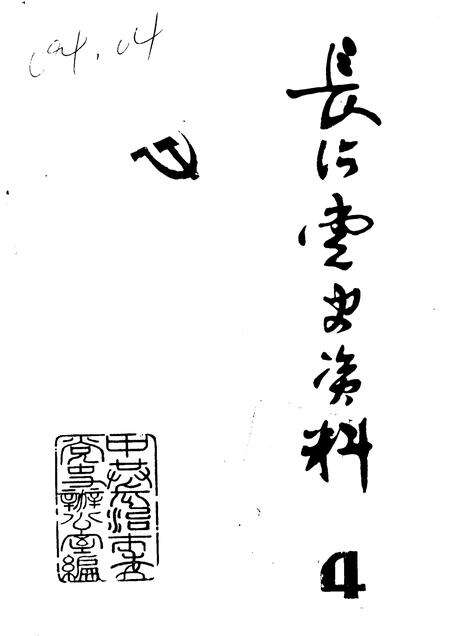 長治党史资料
4
中共长治市委
党史辦公室編